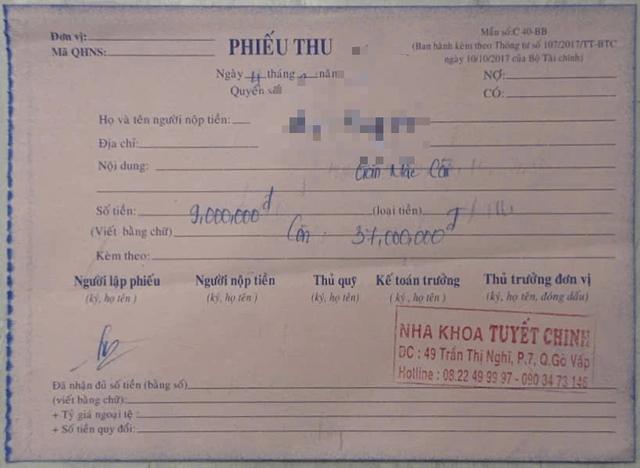 Đơn vị:
Mã QHNS:
PHIẾU THU
Mẫu số:C 40-BB
(Ban hành kèm theo Thông tư số 107/2017/TT-BTC
ngày 10/10/2017 của Bộ Tài chính)
Ngày tháng năm
Quyển số
NỢ:
CÓ:
Họ và tên người nộp tiền:
Địa chỉ:
Nội dung: Mắc Cài
Số tiền: 9,000,000đ (loại tiền) đ
(Viết bằng chữ) Còn 37,000,000đ
Kèm theo:
Người lập phiếu Người nộp tiền Thủ quỹ Kế toán trưởng Thủ trưởng đơn vị
(ký, họ tên) (ký, họ tên) (ký, họ tên) (ký, họ tên) (ký, họ tên, đóng dấu)
NHA KHOA TUYẾT CHINH
ĐC : 49 Trần Thị Nghỉ, P.7, Q.Gò Vấp
Hotline : 08.22 49 99 97 - 090 34 73 146
Đã nhận đủ số tiền (bằng số)
(viết bằng chữ):
+ Tỷ giá ngoại tệ :
+ Số tiền quy đổi: